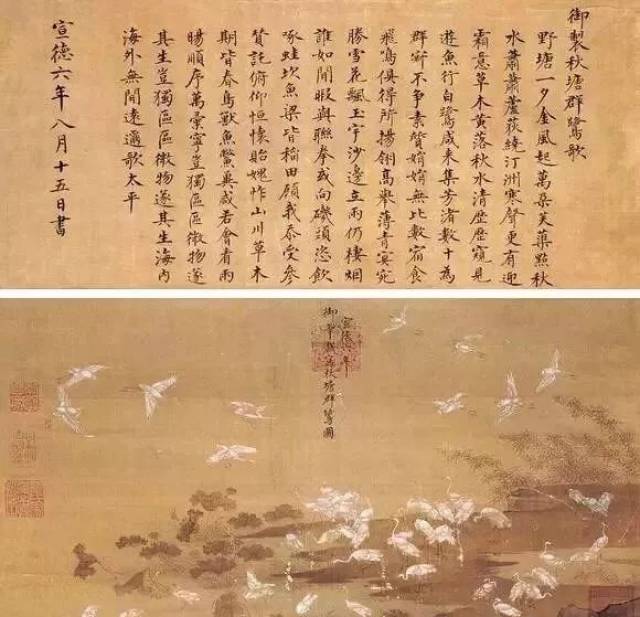 御製秋塘群鷺歌
野塘一夕金風起萬朶芙蕖點秋
水蕭蕭蘆荻繞汀洲寒聲更有迎
霜意草木黃落秋水清歷歷窺見
遊魚行白鷺咸来集芳渚數十為
群不争素質娟娟無比數宿食
飛鳴俱得所揚翎高舉薄青冥宛
勝雪花飄玉宇沙邊立雨仍棲烟
誰如閒暇與聯拳或向磯頭恣飲
啄蛙坎魚梁皆稻田顧我忝受參
賛託俯仰恒懷貽愧怍山川草木
期皆春鳥獸魚鱉咸若會看雨
暘順序萬彙寧豈獨區區微物遂
其生豈獨區區微物遂其生海内
海外無間遠邇歌太平
宣德六年八月十五日書
宣德年
御筆秋塘群鷺圖